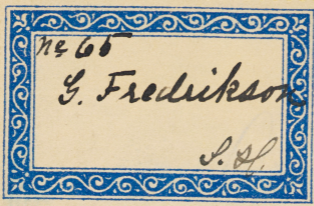 № 65
G. Fredrikson
S. H.